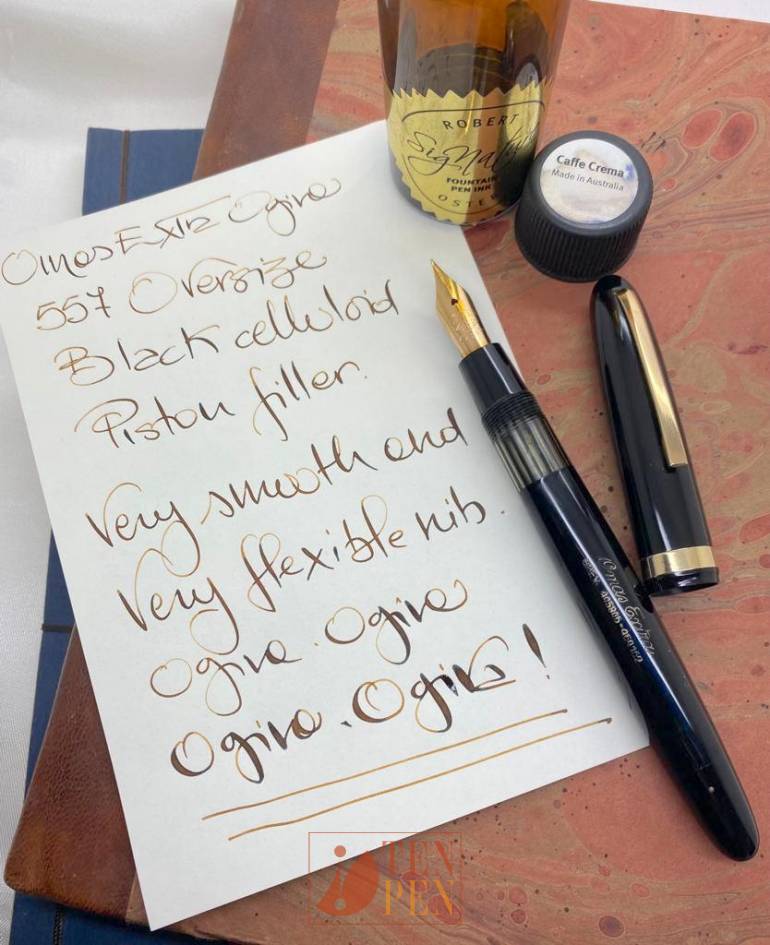 ROBERT
Signature
FOUNTAIN
PEN INK
Caffe Crema
Made in Australia
Omas Extra Ogiva
557 Oversize
Black celluloid
Piston filler.
Very smooth and
Very flexible nib.
Ogiva. Ogiva
Ogiva. Ogiva!
Omas Extra
TEN
PEN